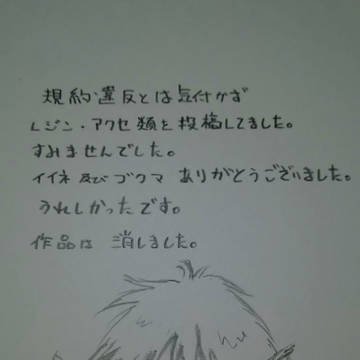 規約違反とは気付かず
レジン・アクセ類を投稿してました。
すみませんでした。
イイネ及びブクマ ありがとうございました。
うれしかったです。
作品は 消しました。